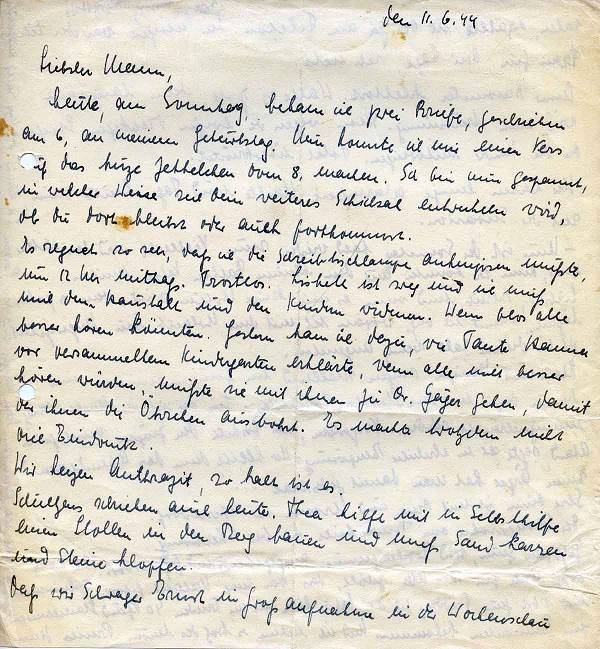 den 11.6.44
Liebster Mann,
heute, am Sonntag, bekam ich zwei Briefe, geschrieben
am 6, an meinem Geburtstag. Nun konnte ich mir einen Vers
auf das kurze Zettelchen vom 8. machen. Ich bin nun gespannt,
in welcher Weise sich dein weiteres Schicksal entwickeln wird,
ob du dort bleibst oder auch fortkommst.
Es regnet so sehr, daß ich die Schreibtischlampe anknipsen mußte,
um 12 Uhr mittags. Trostlos. Liesbeth ist weg und ich muß
mich dem Haushalt und den Kindern widmen. Wenn blos alle
besser hören könnten. Gestern kam ich dazu, wie Tante Hanna
vor versammeltem Kindergarten erklärte, wenn alle nicht besser
hören würden, müßte sie mit ihnen zu Dr. Gäjer gehen, damit
der ihnen die Öhrchen ausbohrt. Es machte trotzdem nicht
viel Eindruck.
Wir heizen Anthrazit, so kalt ist es.
schrieben auch heute. Thea hilft mit in Selbsthilfe
einen Stollen in den Berg bauen und muß Sand karren
und Steine klopfen.
Daß wir Schwager Ernst in Großaufnahme in der Wochenschau